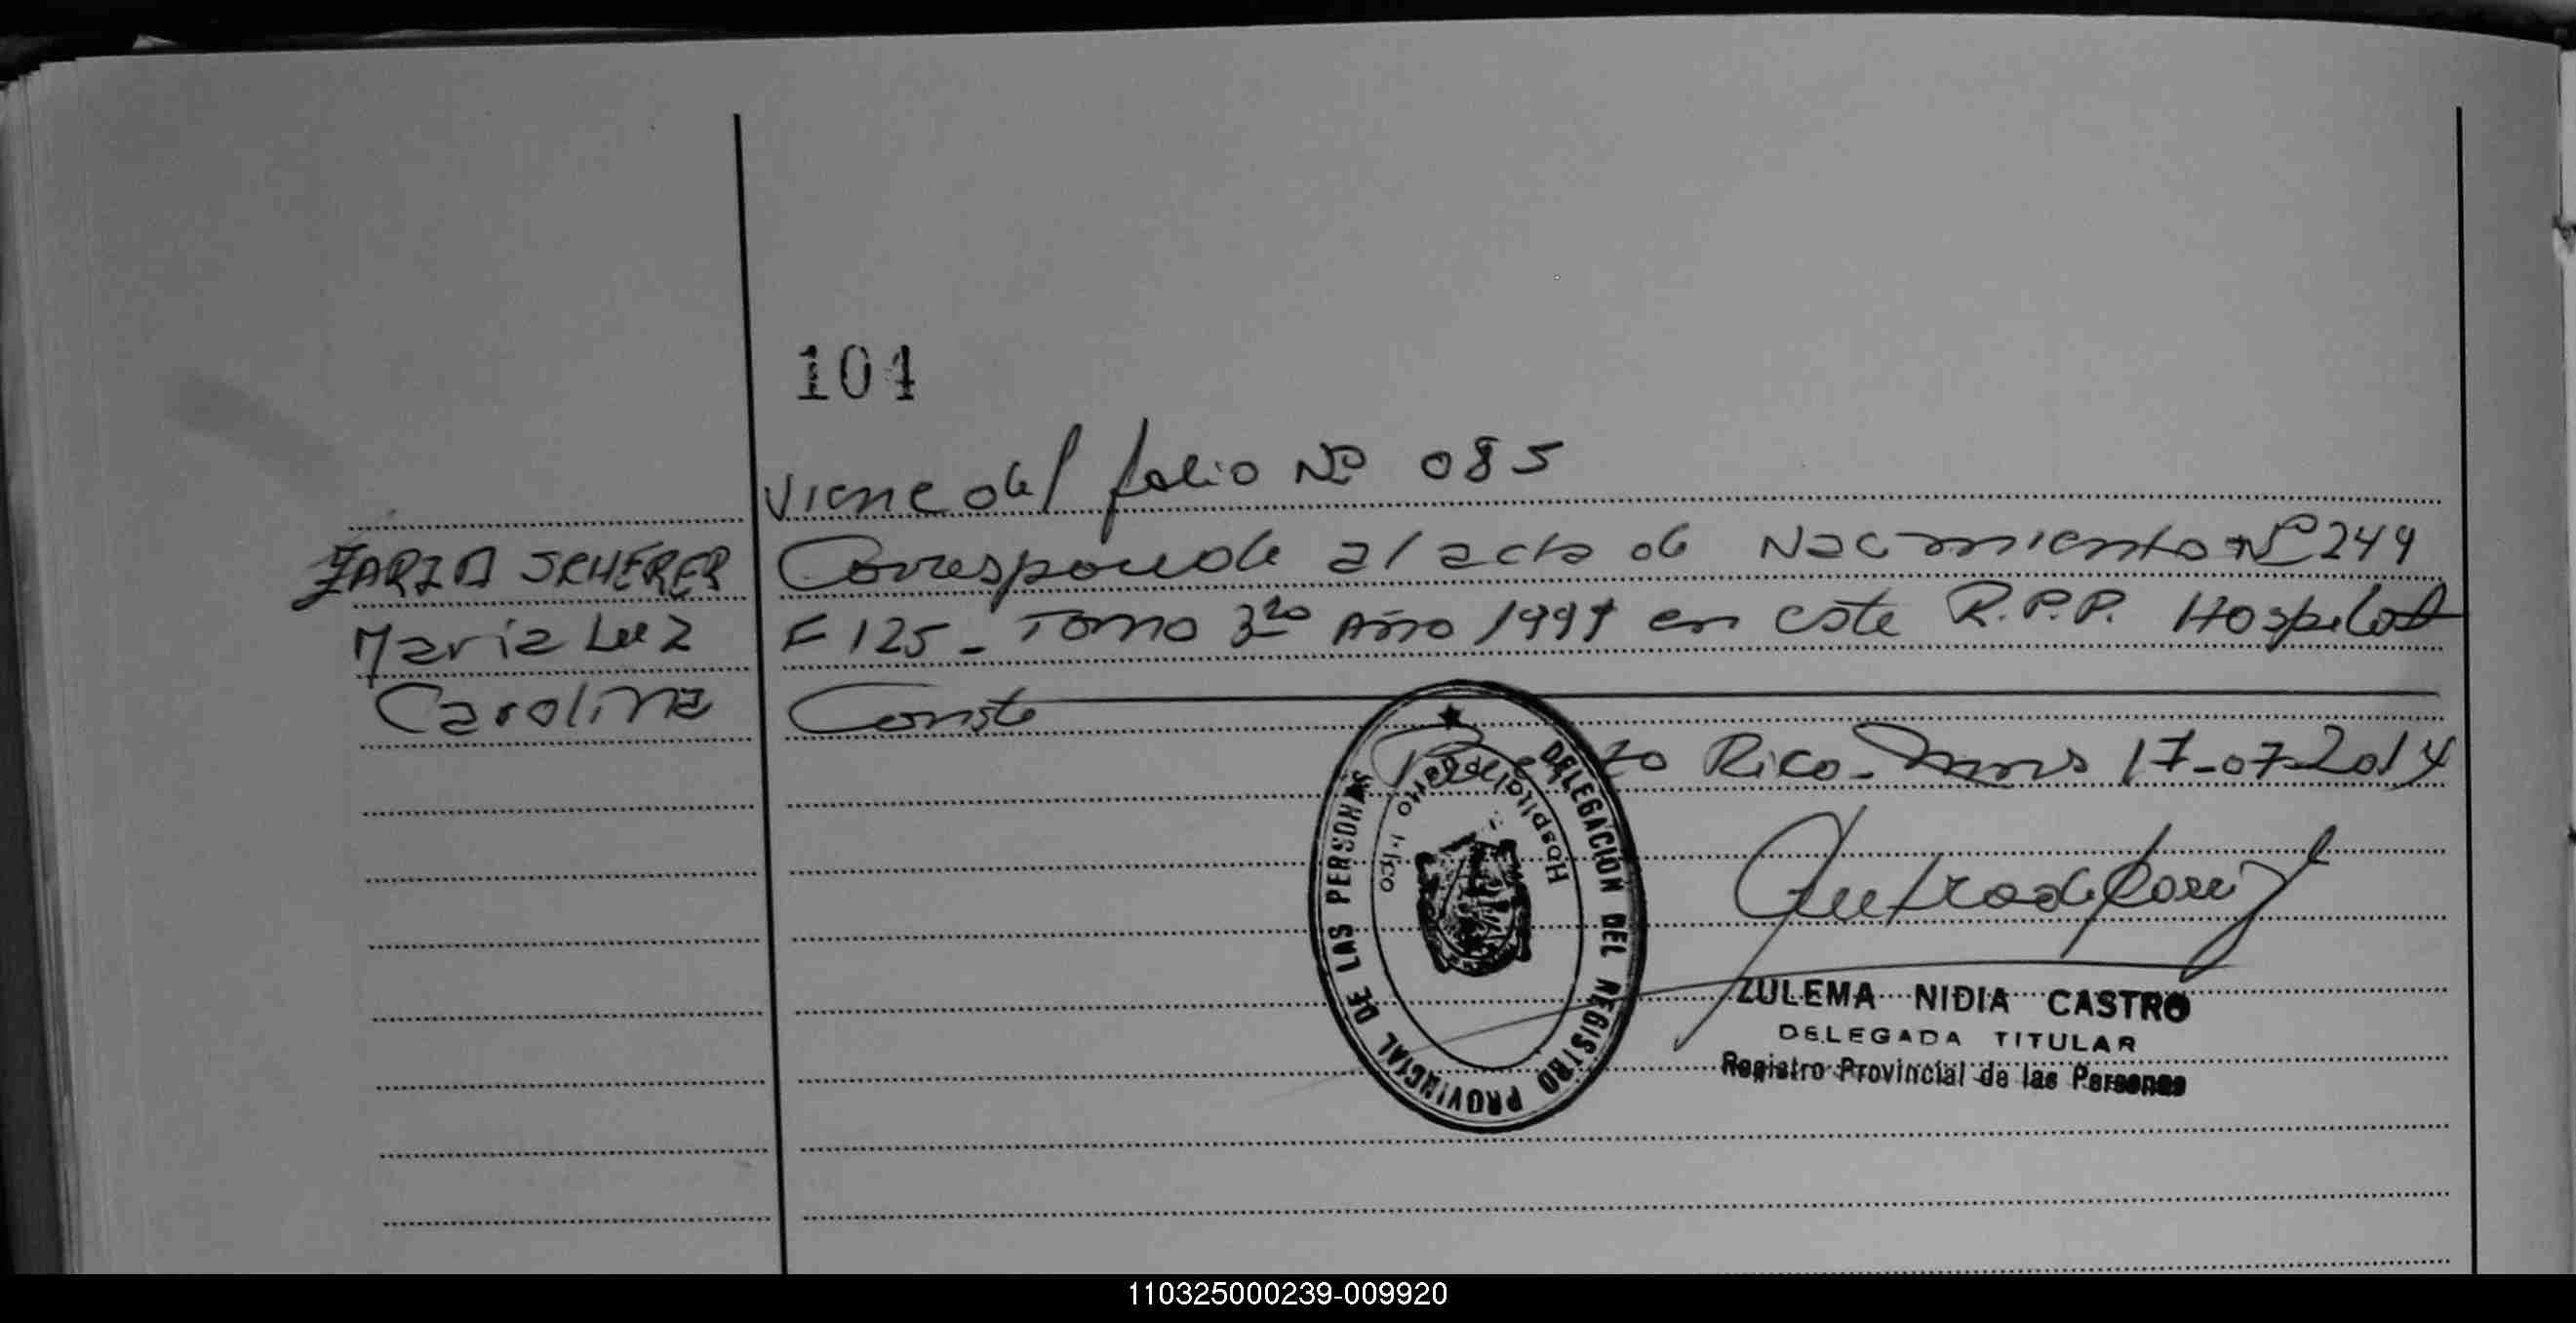 104
Viene del folio Nº 085
ZARZA SCHERER
Maria Luz
Carolina
Corresponde al acta de Nacimiento Nº 249
F 125 - Tomo 3ro Año 1999 en este R.P.P. Hospital
Conste
Puerto Rico - Mnes 17-07-2014
DELEGACION DEL REGISTRO PROVINCIAL DE LAS PERSONAS
Hospital Puerto Rico
ZULEMA NIDIA CASTRO
DELEGADA TITULAR
Registro Provincial de las Personas
110325000239-009920